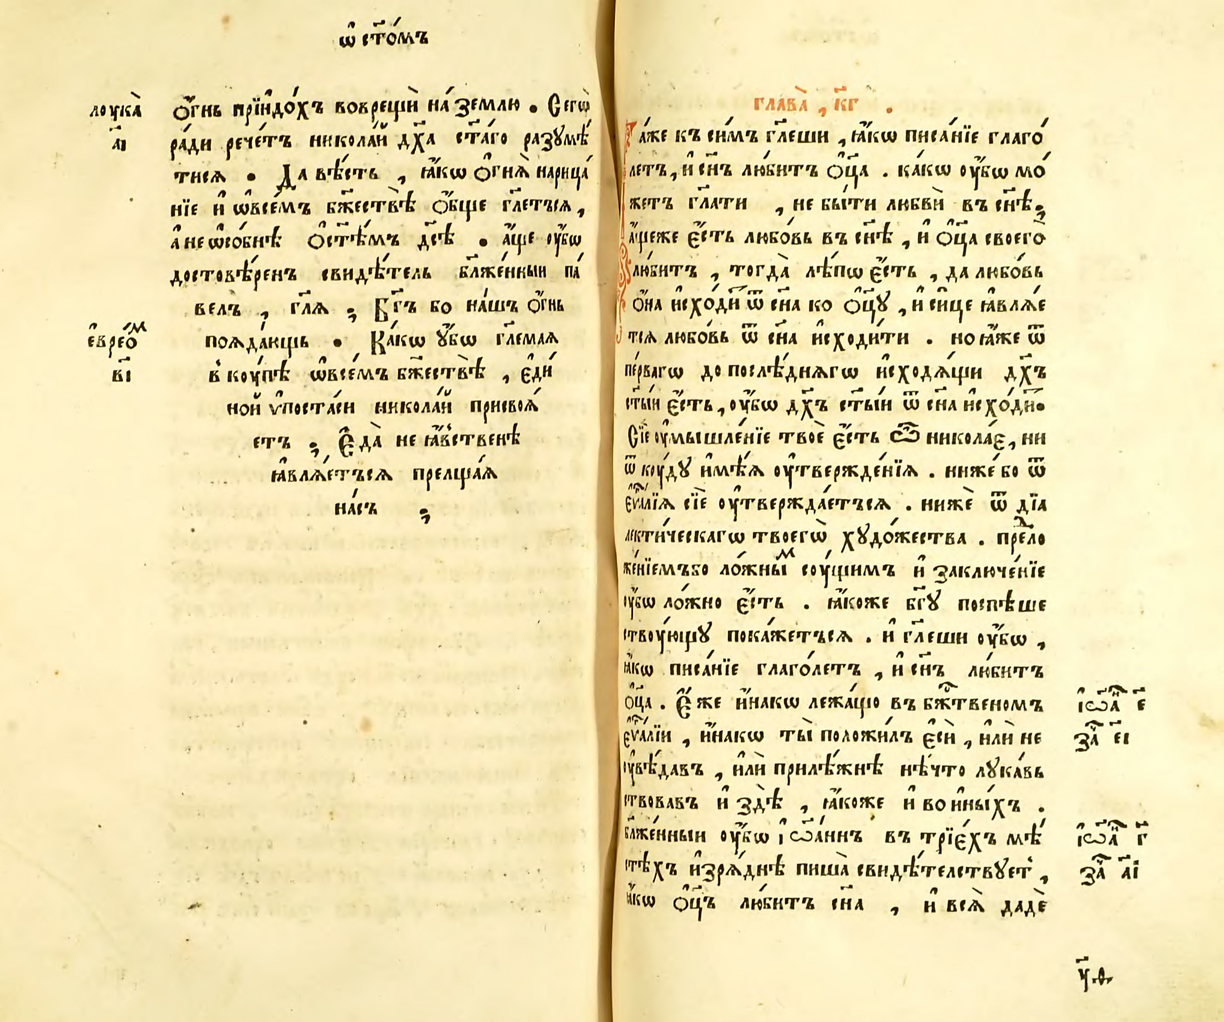 ѡ҆ ст҃о́мъ
лоука̀
а҃і
ѻ҆́гнь прїидо́хъ воврещѝ на́ землю . Сегѡ̀
ра́ди рече́тъ никола́й дх҃а ст҃а́го разꙋмѣ́
тисѧ . Да вѣ́сть , ꙗ҆́кѡ ѻ҆гнѧ̀ нарица́
нїе и҆ ѡ҆всѣ́мъ бж҃ествѣ̀ ѻ҆́бще гл҃етъсѧ ,
а҆ не ѡ҆со́бнѣ ѻ҆ ст҃ѣ́мъ дс҃ѣ . а҆́ще ᲂу҆́бѡ
достовѣ́ренъ свидѣ́тель бл҃же́нныи па́
велъ , гл҃ѧ ; Бг҃ъ бо на́шъ ѻ҆́гнь
є҆вре́ѡⷨ
в҃і
поѧда́ющь . Ка́кѡ ᲂу҆́бѡ гл҃емаѧ
в коу́пѣ ѡ҆всѣ́мъ бж҃ествѣ̀ , є҆ди́
ной ѵ҆поста́си никола́й присвоѧ́
етъ ; Є҆да̀ не ꙗ҆́вственѣ
ꙗ҆влѧ́етъсѧ прелща́ѧ
на́съ ;
глава̀ , к҃г .
Та́же къ си́мъ гл҃еши , ꙗ҆́кѡ писа́нїе глаго́
летъ , и҆ сн҃ъ лю́битъ ѻ҆ц҃а . ка́кѡ ᲂу҆́бѡ мо́
жетъ гл҃ати , не бы́ти любвѝ въ сн҃ѣ ;
а҆́щеже є҆́сть любо́вь въ сн҃ѣ , и҆ ѻ҆ц҃а своего̀
лю́битъ , тогда̀ лѣ́по є҆́сть , да любо́вь
ѻ҆на̀ и҆схо́диⷮ ѿ сн҃а ко ѻ҆ц҃ꙋ , и҆ си́це ꙗ҆влѧ́е
тсѧ любо́вь ѿ сн҃а и҆сходи́ти . но ꙗ҆́же ѿ
пе́рвагѡ до послѣ́днѧгѡ и҆сходѧ́щи дх҃ъ
ст҃ы́и є҆́сть , ᲂу҆́бѡ дх҃ъ ст҃ы́и ѿ сн҃а и҆схо́диⷮ .
Сїѐ ᲂу҆мышле́нїе твоѐ є҆́сть ѽ никола́є , ни
ѿ коу́дꙋ и҆мѣ́ѧ ᲂу҆твержде́нїѧ . ниже́ бо ѿ
є҆ѵⷢ҇лїѧ сїѐ ᲂу҆твержда́етъсѧ . нижѐ ѿ дїа
лекти́ческагѡ твоегѡ̀ хꙋдо́жества . преⷣло
же́нїемъбо ло́жныⷨ соу́щимъ и҆ заключе́нїе
ᲂу҆́бѡ ло́жно є҆́сть . ꙗ҆́коже бг҃ꙋ поспѣше
ствоу́ющꙋ пока́жетъсѧ . и҆ гл҃еши ᲂу҆́бѡ ,
ꙗ҆́кѡ писа́нїе глаго́летъ , и҆ сн҃ъ лю́битъ
ѻ҆ц҃а . Є҆́же и҆́накѡ лежа́щю въ бжⷭ҇твеномъ
є҆ѵⷢ҇лїи , и҆́накѡ ты̀ положи́лъ є҆сѝ , и҆лѝ не
ᲂу҆вѣ́давъ , и҆лѝ прилѣ́жнѣ нѣ́что лꙋка́въ
ствовавъ и҆ здѣ̀ , ꙗ҆́коже и҆ во и҆ны́хъ .
бл҃же́нныи ᲂу҆́бѡ і҆ѡа́ннъ въ трїе́хъ мѣ́
стѣхъ и҆зрѧ́днѣ пиша̀ свидѣ́телствꙋетⸯ ,
ꙗ҆́кѡ ѻ҆ц҃ъ лю́битъ сн҃а , и҆ всѧ̀ дадѐ
і҆ѡⷩ҇а є҃
за҄ⷱ є҃і
і҆ѡⷩ҇а г҃
за҄ⷱ а҃і
ч҃.ѳ.